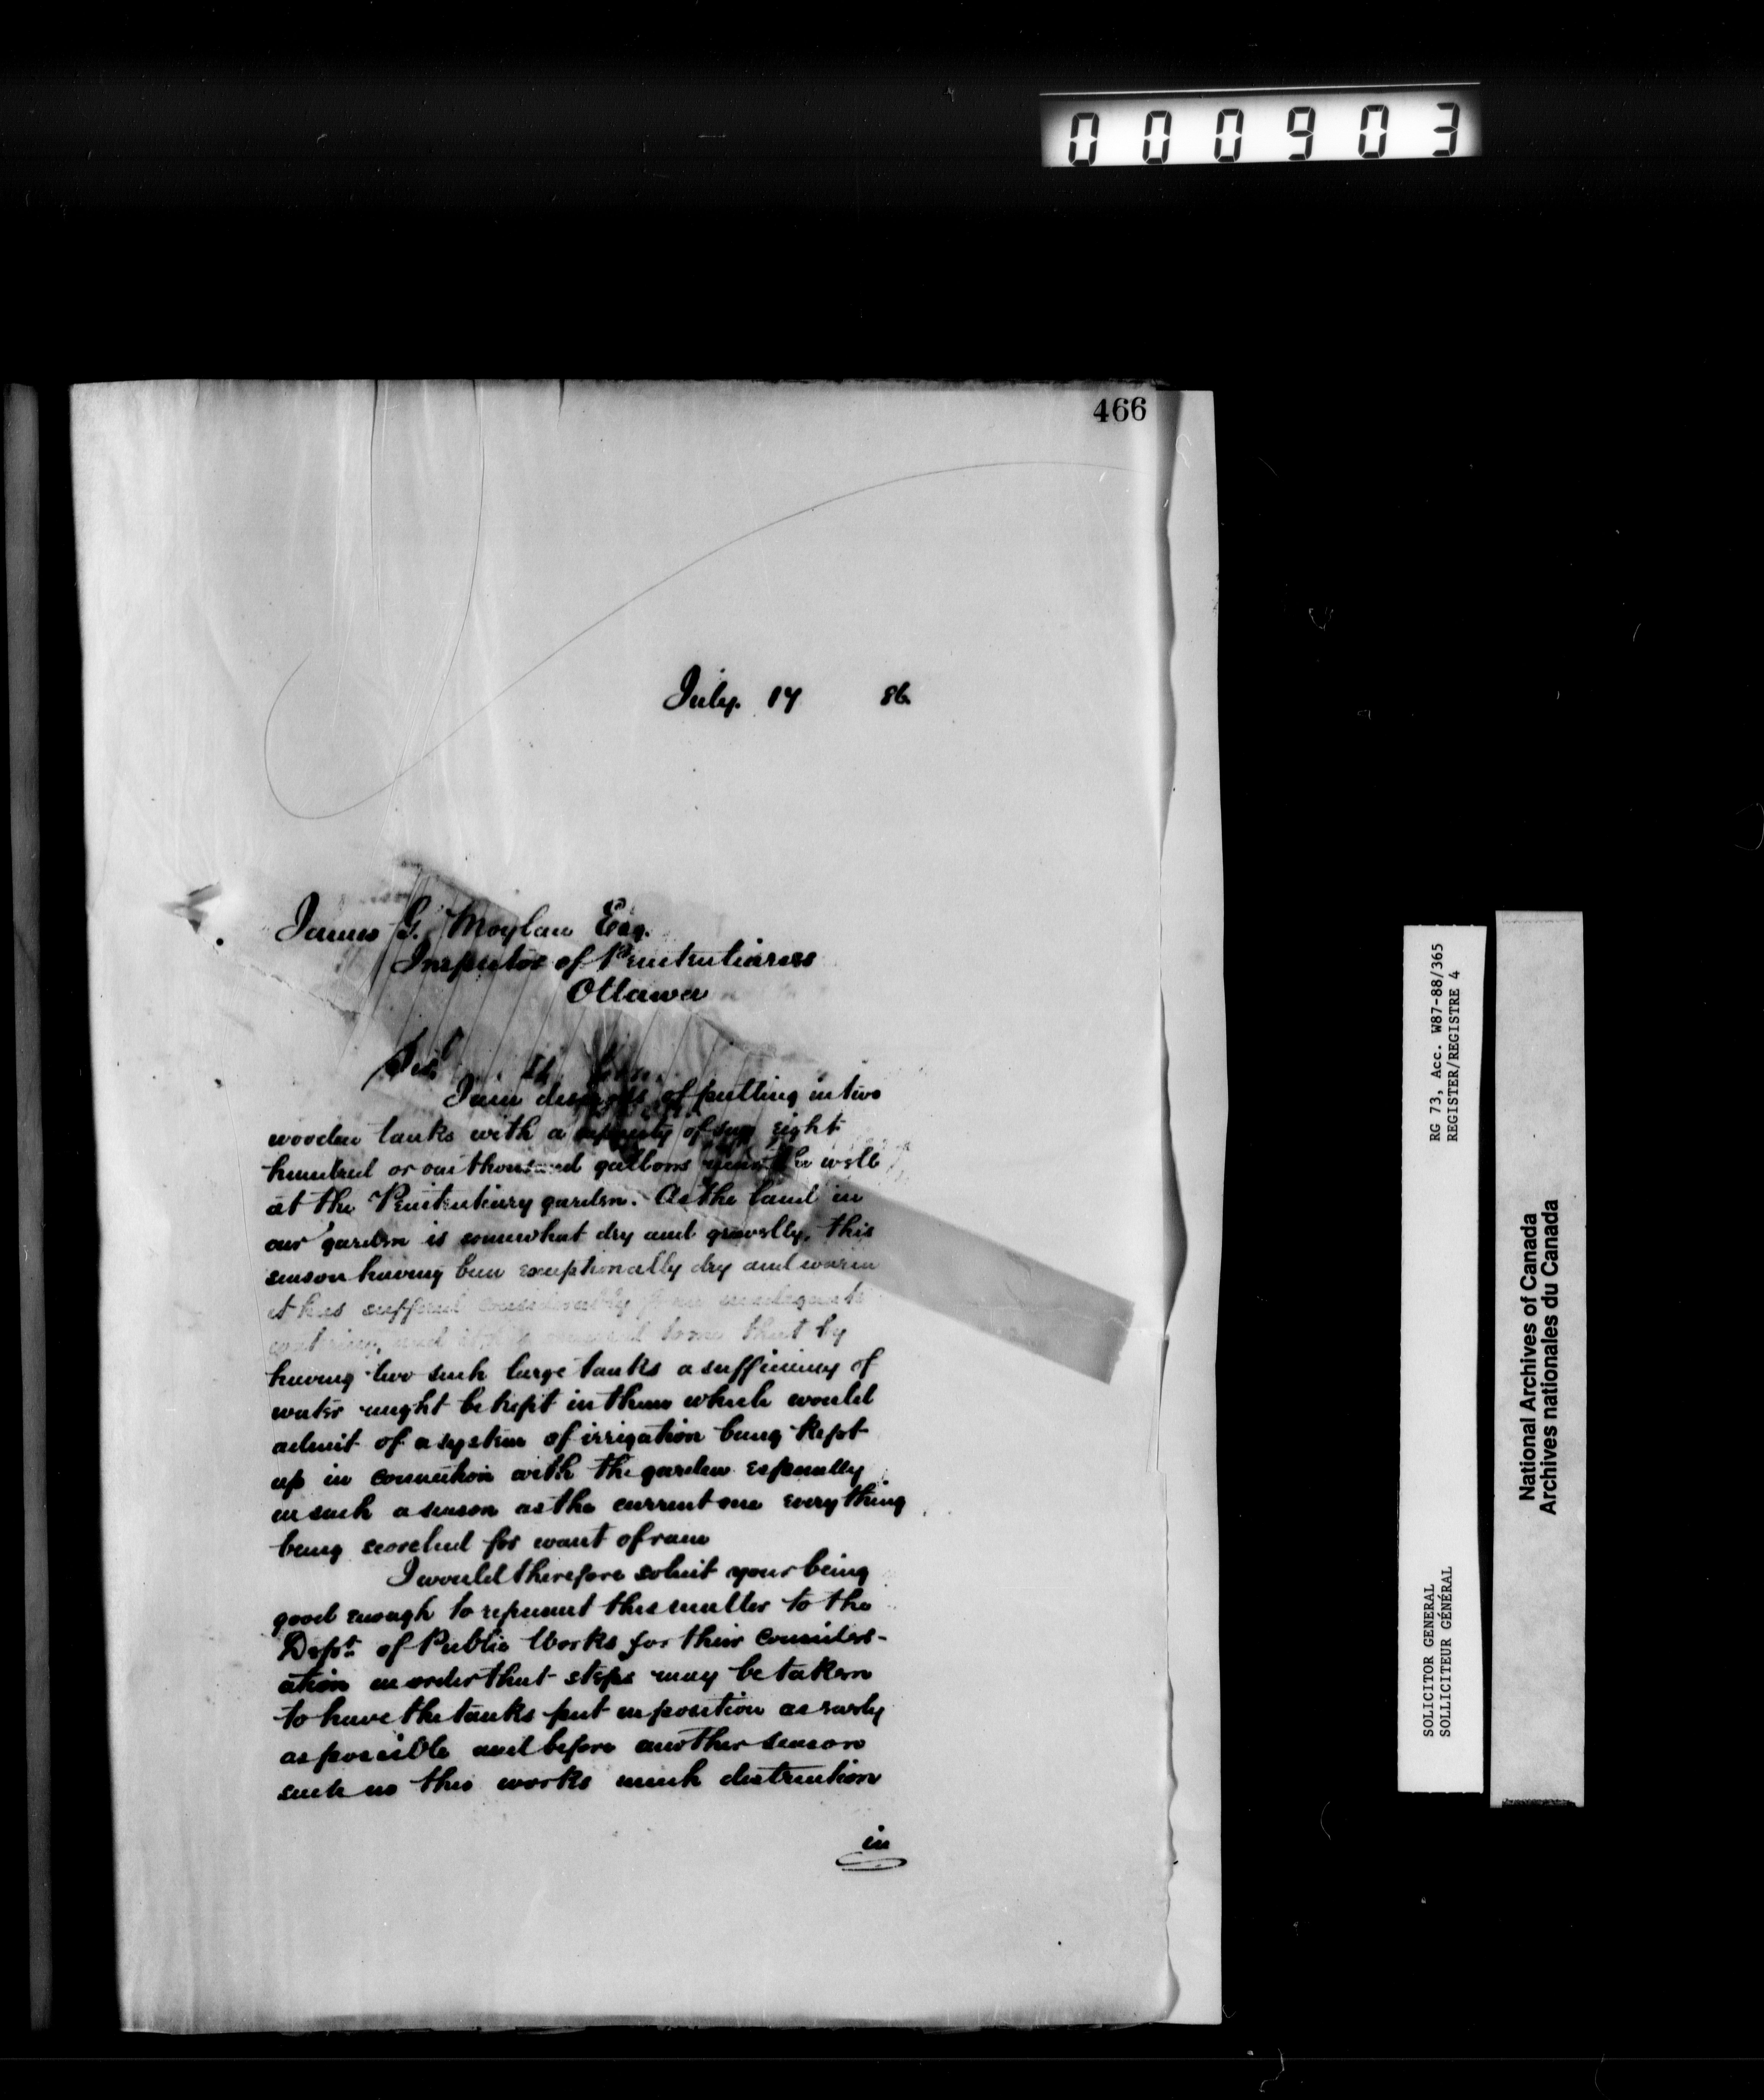 000903
466
July. 17 86
James G. Moylan Esq.
Inspector of Penitentiaries
Ottawa
Sir
I am desirous of putting in two
wooden tanks with a capacity of say eight
hundred or one thousand gallons near the well
at the Penitentiary garden. As the land in
our garden is somewhat dry and gravelly, this
season having been exceptionally dry and warm
it has suffered considerably from inadequate
watering, and it to me that by
having two such large tanks a sufficiency of
water might be kept in them which would
admit of a system of irrigation being kept
up in connection with the garden especially
in such a season as the current one everything
being scorched for want of rain
I would therefore solicit your being
good enough to represent this matter to the
Dept. of Public Works for their consider-
ation in order that steps may be taken
to have the tanks put in position as early
as possible and before another season
such as this works much destruction
in
RG 73, Acc. W87-88/365
REGISTER/REGISTRE 4
SOLICITOR GENERAL
SOLLICITEUR GÉNÉRAL
National Archives of Canada
Archives nationales du Canada